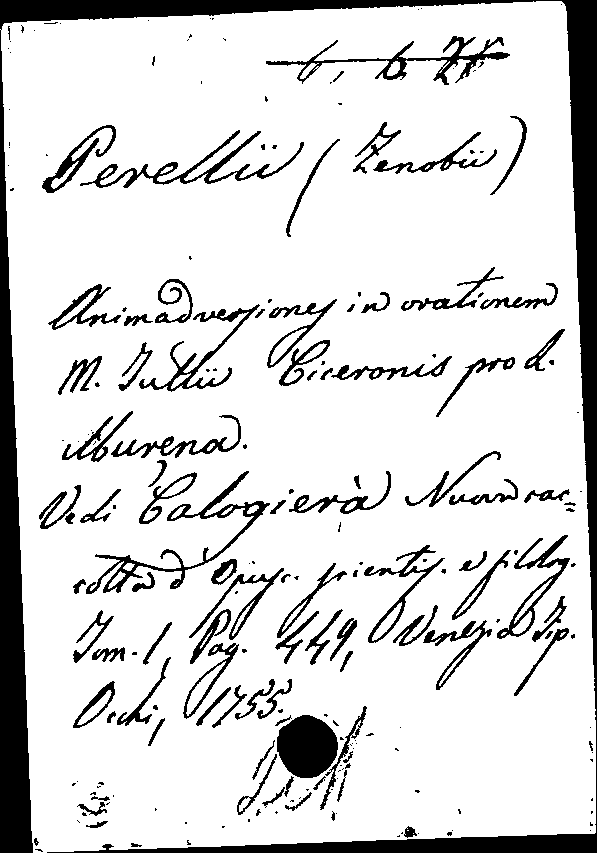 6, 6
Perellii (Zenobii)
Animadversiones in orationem
M. Tullii Ciceronis pro L.
Murena.
Vedi Calogierà Nuova rac=
colta d' Opusc. scientif. e filolog.
Tom. 1, Pag. 449, Venezia Tip.
Occhi, 1755.